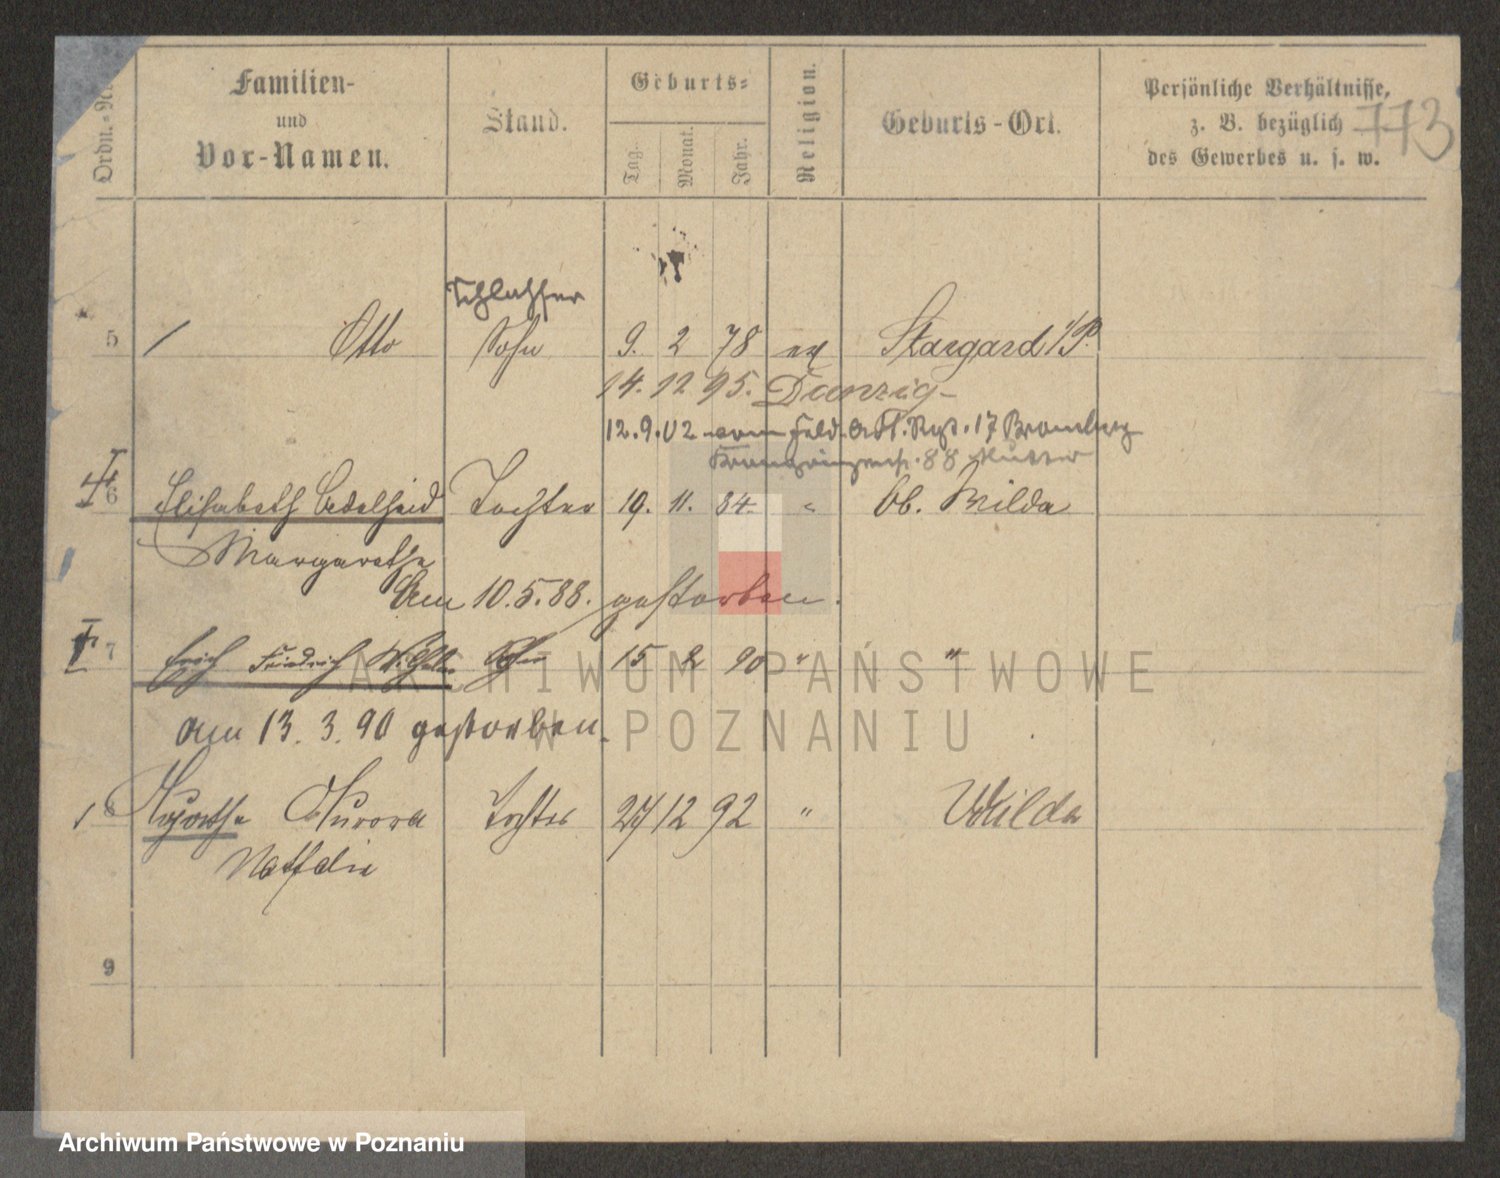 Ordn.-Nr.
Familien-
und
Vor-Namen.
Stand.
Geburts-
Tag.
Monat.
Jahr.
Religion.
Geburts-Ort.
Persönliche Verhältnisse,
z. B. bezüglich
des Gewerbes u. s. w.
773
Schlosser
5 / Otto Sohn 9. 2 78 ev Stargard i/P.
14. 12 95. Danzig
12.9.02 vom Feld. Art. Rgt. 17 Bromberg
Kronprinzenstr. 88 Mutter
6 Elisabeth Adelheid Tochter 19. 11. 84. " Ob. Wilda
Margarethe
Am 10.5.88. gestorben.
7 Erich Friedrich Wilhelm Sohn 15 2 90 " "
am 13. 3. 90 gestorben.
8 Aurora Tochter 27 12 92 " Wilda
Nathalie
9
ARCHIWUM PAŃSTWOWE
W POZNANIU
Archiwum Państwowe w Poznaniu